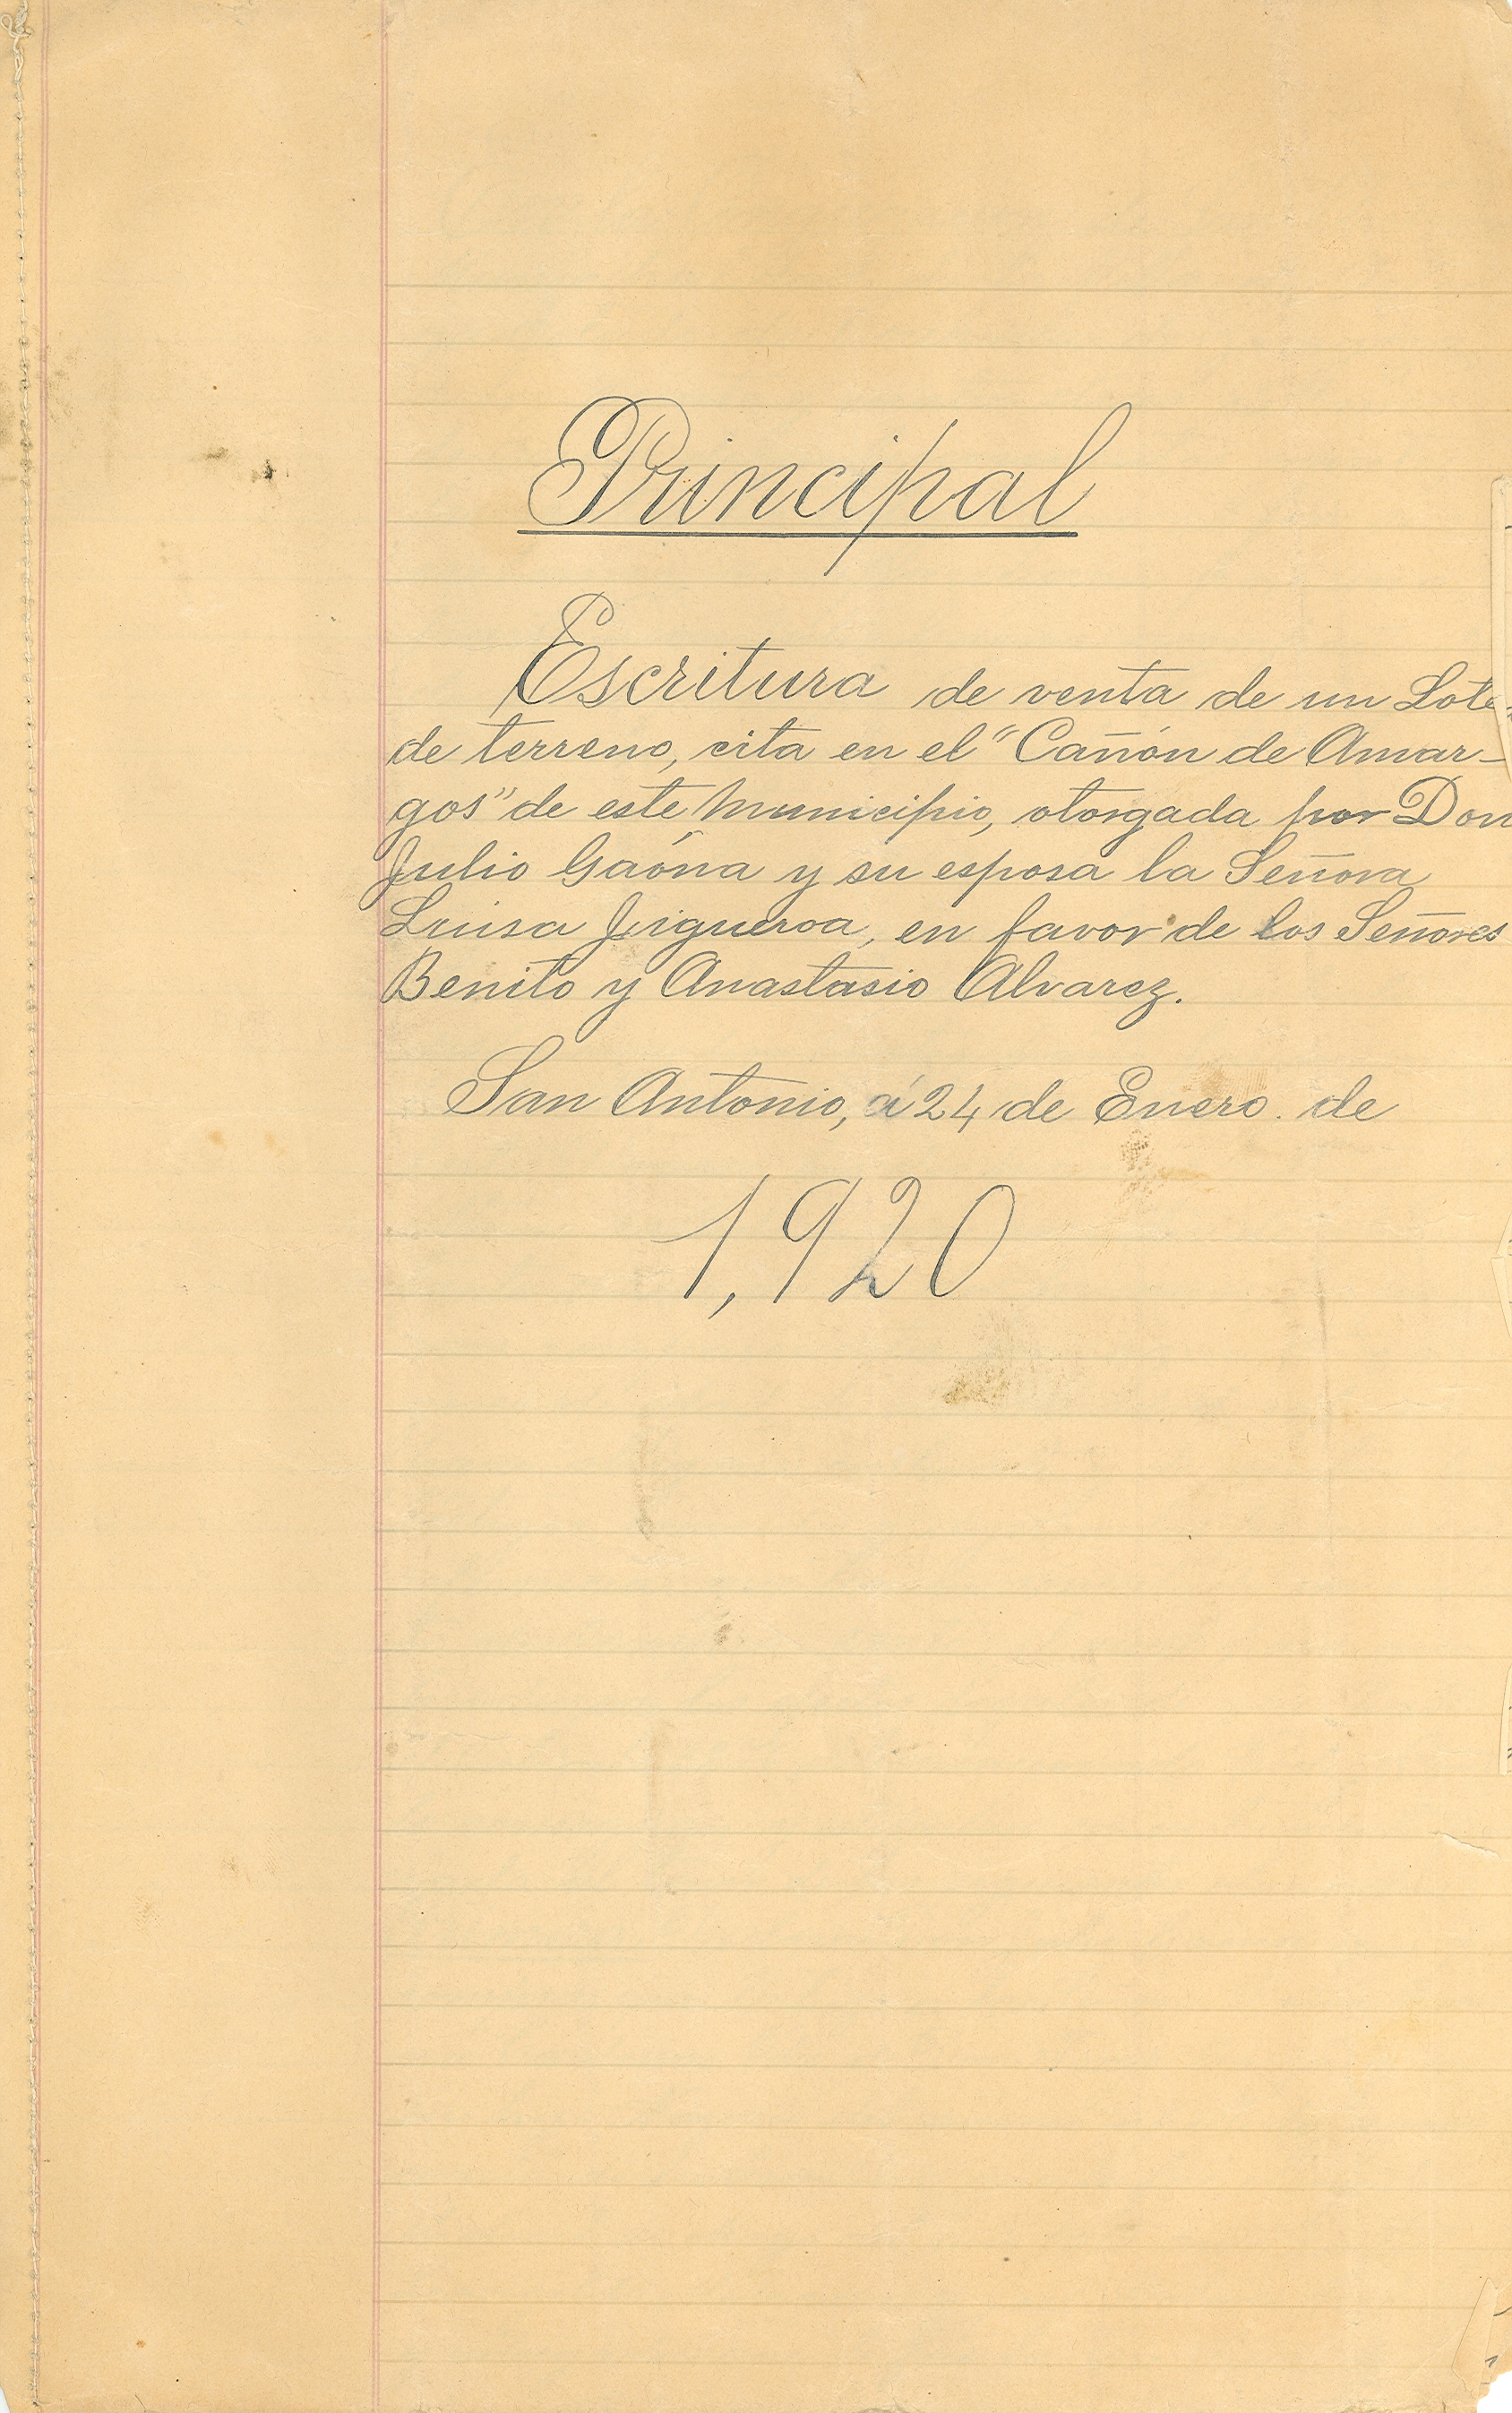 Principal
Escritura de venta de un Lote
de terreno, cita en el "Cañón de Amar-
gos" de este Municipio, otorgada por Don
Julio Gaóna y su esposa la Señora
Luisa Figueroa, en favor de los Señores
Benito y Anastasio Alvarez.
San Antonio, á 24 de Enero. de
1,920